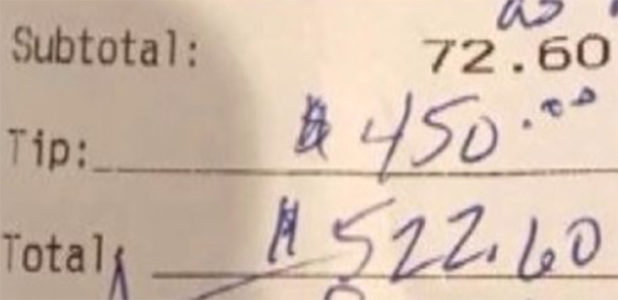 Subtotal: 72.60
Tip: $450.00
Total: $522.60